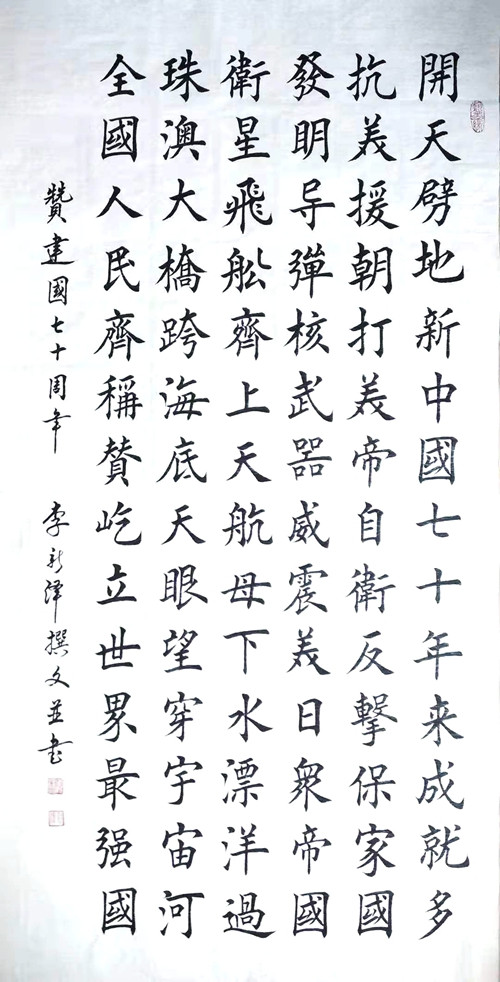 開天劈地新中國七十年来成就多
抗美援朝打美帝自衛反擊保家國
發明导彈核武器威震美日衆帝國
衛星飛舩齊上天航母下水漂洋過
珠澳大橋跨海底天眼望穿宇宙河
全國人民齊稱賛屹立世界最强國
贊建國七十周年 李新澤撰文並書